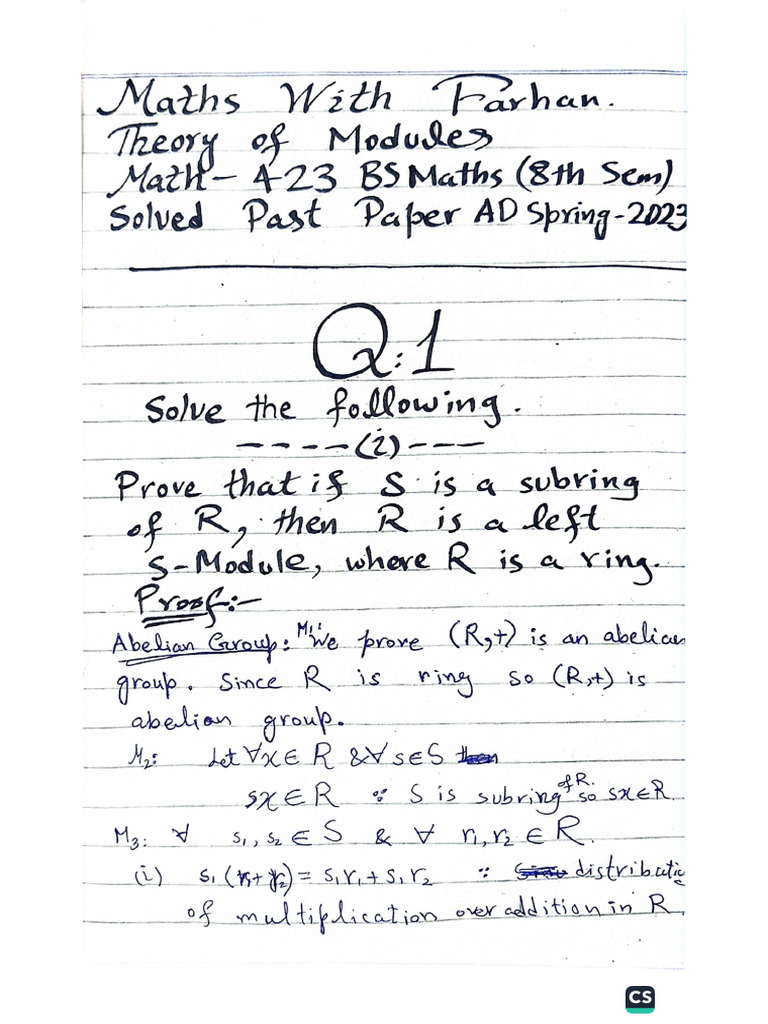 Maths With Farhan.
Theory of Modules
Math-423 BS Maths (8th Sem)
Solved Past Paper AD Spring-2023
Q:1
Solve the following.
----(i)---
Prove that if S is a subring
of R, then R is a left
S-Module, where R is a ring.
Proof:-
Abelian Group: M₁: We prove (R,+) is an abelian
group. Since R is ring so (R,+) is
abelian group.
M₂: Let ∀x∈R & ∀s∈S then
sx∈R ∵ S is subring of R. so sx∈R.
M₃: ∀ s₁,s₂∈S & ∀ r₁,r₂∈R.
(i) s₁(r₁+r₂)=s₁r₁+s₁r₂ ∵ distributi
of multiplication over addition in R.
CS